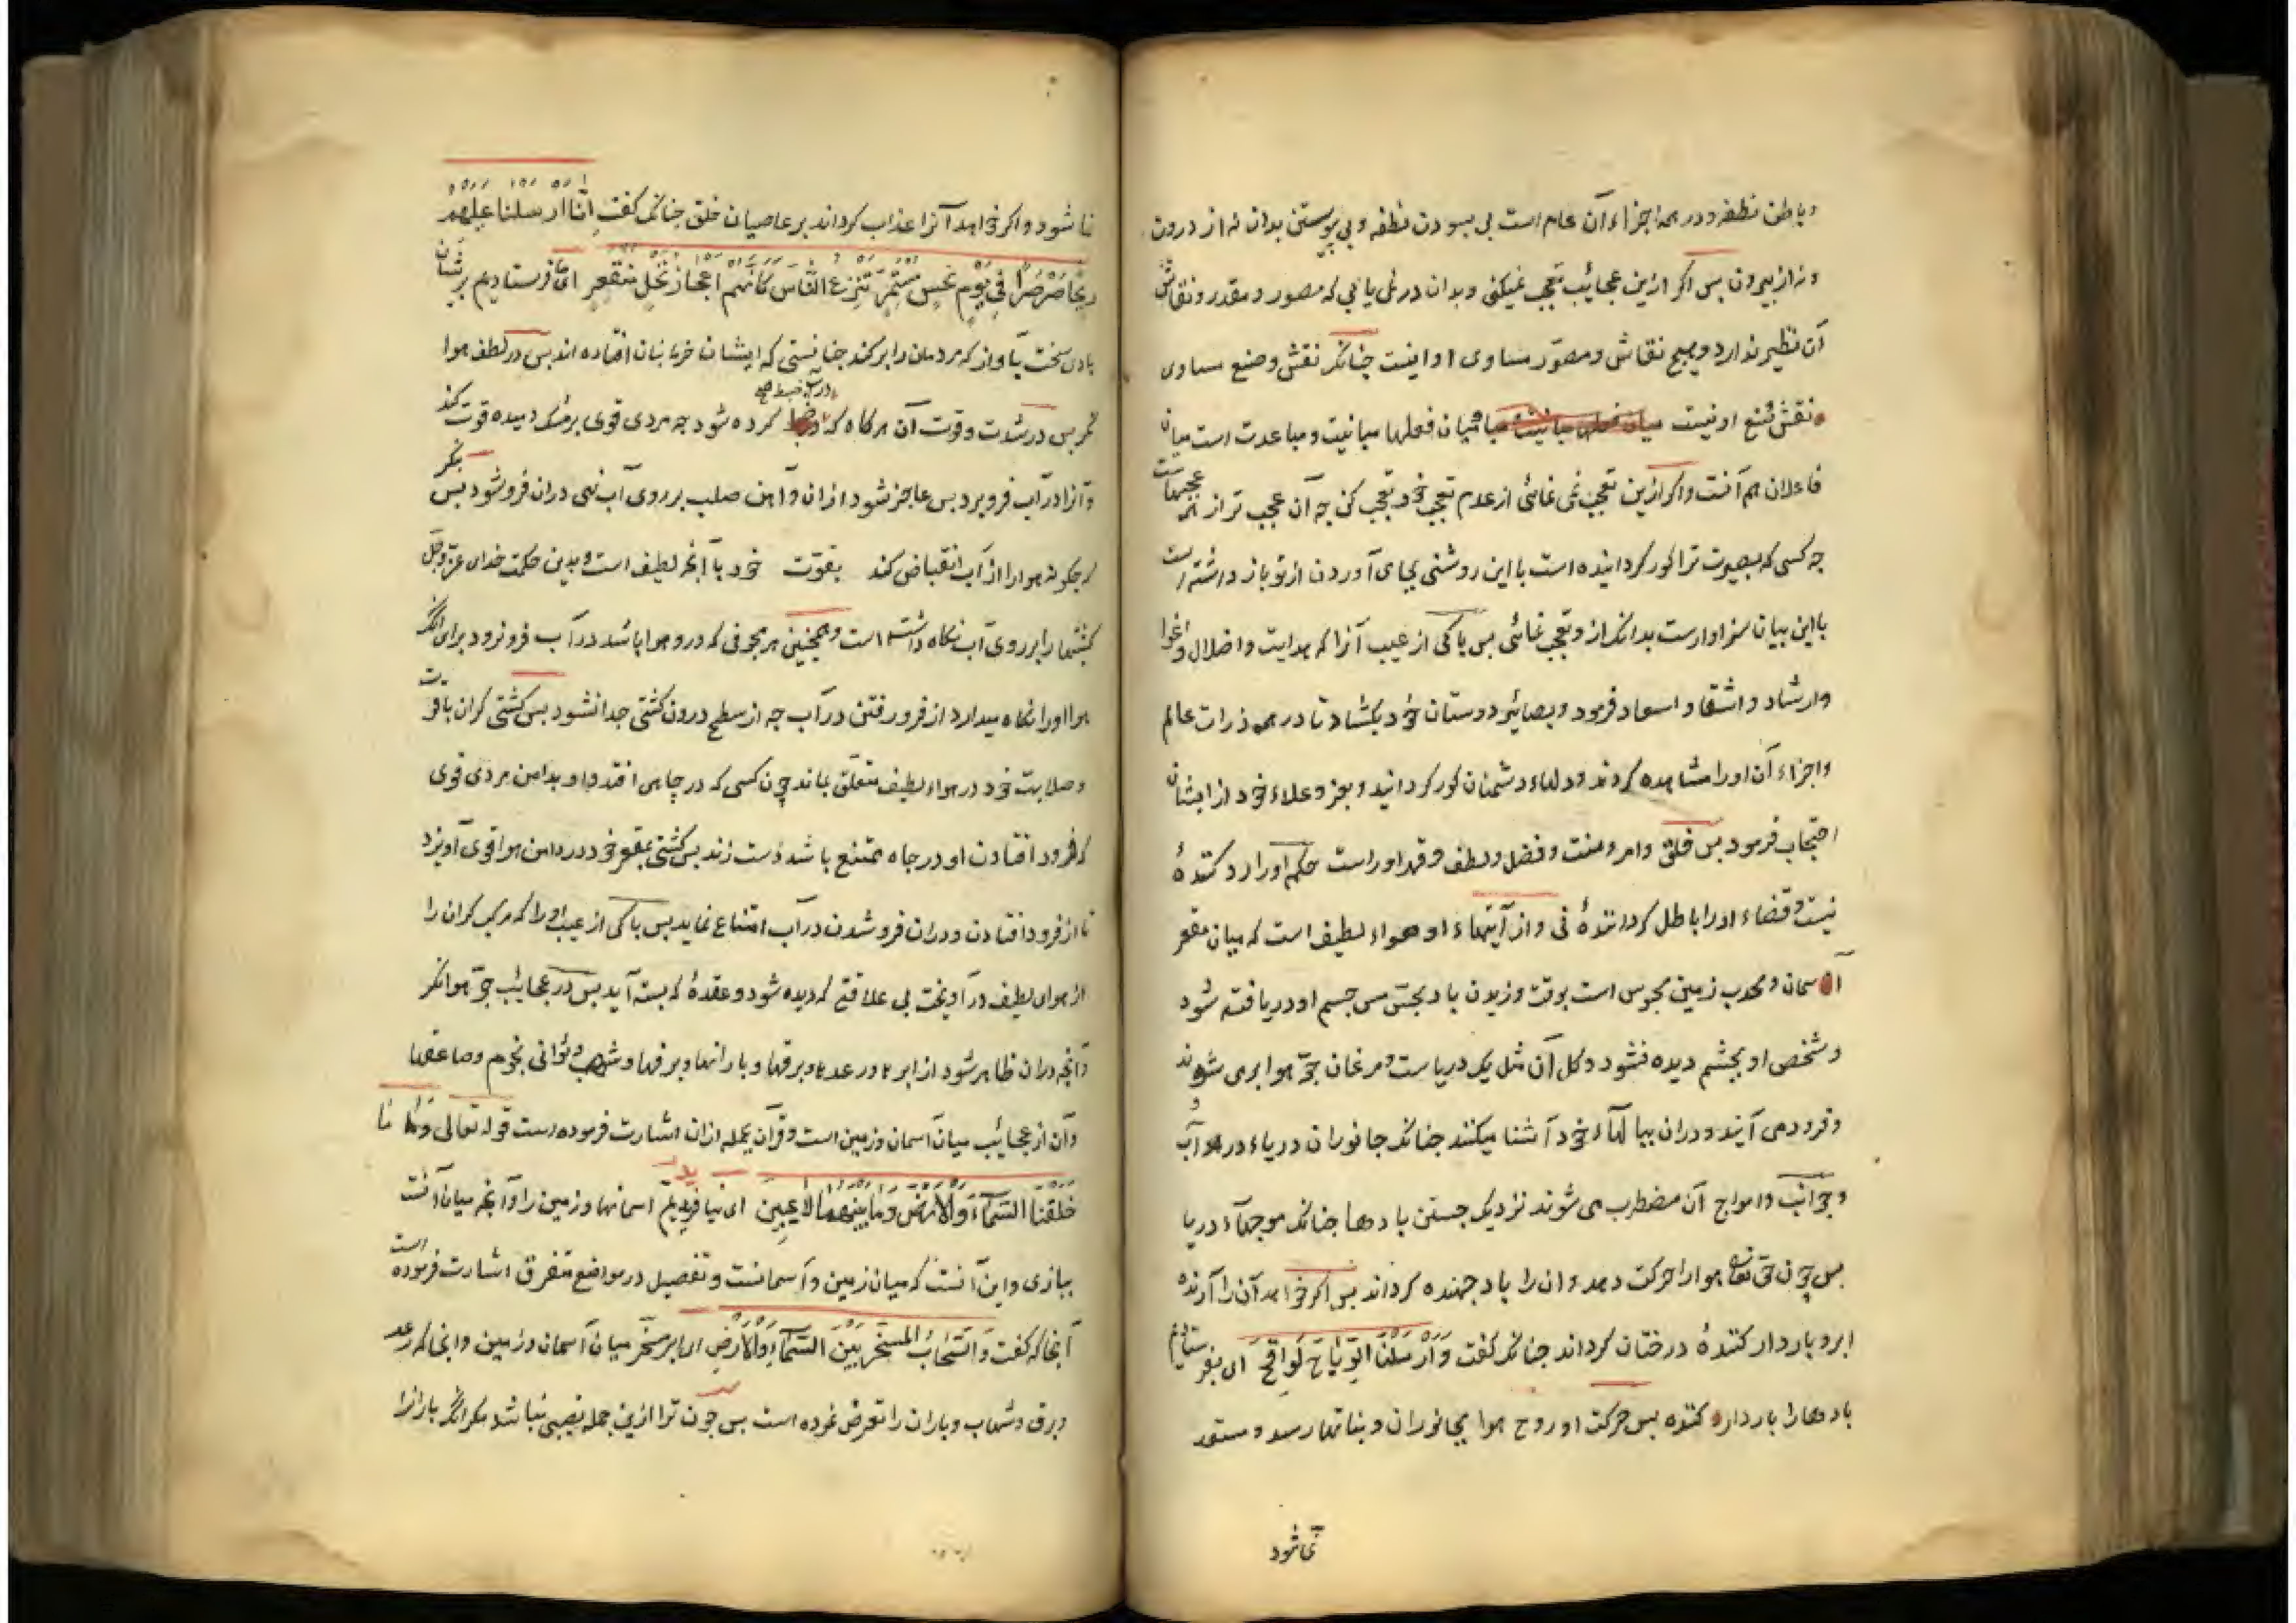 و باطن نطفه و در همه اجزاء آن عام است بی بسودن نطفه و بی پیوستن بدان نه از درون
و نه از بیرون پس اکر ازین عجائب تعجب نمیکنی و بدان در نمی یابی که مصور و مقدر و نقاش
آن نظیر ندارد و هیچ نقاش و مصوّر مساوی او نیست چنانکه نقش و صنع مساوی
نقش و صنع او نیست میان فعلها مباینت و مباعدت است میان
فاعلان هم آنست و اکر ازین تعجب نمی نمائی از عدم تعجب خود تعجب کن چه آن عجب تر از همه عجبهاست
چه کسی که بصیرت ترا کور کردانیده است با این روشنی بجای آوردن از تو باز داشته است
با این بیان سزاوارست بدانکه ازو تعجب نمائی پس پاکی از عیب آنرا که هدایت و اضلال و اغوا
و ارشاد و اشقا و اسعاد فرمود و بصائر دوستان خود بکشاد تا در همه ذرات عالم
و اجزاء آن اورا مشاهده کردند و دلهاء دشمنان کور کردانید و بعز و علاء خود از ایشان
احتجاب فرمود پس خلق و امر و منت و فضل و لطف و قهر اوراست حکم اورا رد کنندهٔ
نیست و قضاء اورا باطل کردانندهٔ نی و از آیتهاء او هواء لطیف است که میان مقعر
آسمان و محدب زمین محبوس است بوقت وزیدن باد بحسّ مس جسم او دریافته شود
و شخص او بچشم دیده نشود و کل آن مثل یک دریاست و مرغان جوّ هوا برمی شوند
و فرود می آیند و دران ببالهاء خود آشنا میکنند چنانکه جانوران دریاء در آب
و جوانب و امواج آن مضطرب می شوند نزدیک جستن بادها چنانکه موجهاء دریا
پس چون حق تعالی هوا را حرکت دهد و ان را باد جهنده کرداند پس اکر خواهد آن را آرنده
ابر و باردار کنندهٔ درختان کرداند چنانکه کفت وَاَرْسَلْنَا الرِّيَاحَ لَوَاقِحَ ای بفرستادیم
بادها را باردار کننده پس حرکت او روح هوا بجانوران و نباتها رسد و مستعد
نمی شود
نما شود و اکر خواهد آنرا عذاب کرداند بر عاصیان خلق چنانکه کفت اِنَّا ارسلنا علیهم
ریحًا صَرْصَرًا فِي يَوْمِ نَحْسٍ مُسْتَمِرٍّ تَنْزِعُ النَّاسَ كَأَنَّهُمْ اَعْجَازُ نَخْلٍ مُنْقَعِرٍ ای ما فرستادیم بریشان
بادی سخت بآواز که مردمان را بر کند چنانستی که ایشان خرما بنان افتاده اند پس در لطف هوا
نکر پس در شدت و قوت آن هرکاه که در آب ضبط کرده شود چه مردی قوی بر مشک دمیده قوت کند
و آنرا در آب فرو برد پس عاجز شود ازان و آهن صلب بر روی آب نهی دران فرو شود پس بنکر
که چکونه هوا را از آب انقباض کند بقوت خود با آنکه لطیف است و بدین حکمت خدای عزّ و جلّ
کشتیها را بر روی آب نکاه داشته است و همچنین هر مجوفی که درو هوا باشد در آب فرو نرود برای آنکه
هوا اورا نکاه میدارد از فرو رفتن در آب چه از سطح درون کشتی جدا نشود پس کشتی کران با قوت
و صلابت خود در هواء لطیف متعلق بماند چون کسی که در چاهی افتد و او بدامن مردی قوی
که فرود افتادن او در چاه ممتنع باشد دست زند پس کشتی بمقعر خود در دامن هوا قوی آویزد
تا از فرود افتادن و دران فرو شدن در آب امتناع نماید پس پاکی از عیب اورا که مرکب کران را
از هوای لطیف در آویخت بی علاقتی که دیده شود و عقدهٔ که بسته آید پس در عجایب جوّ هوا نکر
و آنچه دران ظاهر شود از ابرها و رعدها و برقها و بارانها و برفها و شهب و ثوانی نجوم و صاعقها
و آن از عجائب میان آسمان و زمین است و قرآن بجمله ازان اشارت فرموده است قوله تعالی وَمَا
خَلَقْنَا السَّمَاءَ وَالْاَرْضَ وَمَا بَيْنَهُمَا لَاعِبِينَ ای نیافریدیم اسمانها و زمین را و آنچه میان آنست
ببازی و این آنست که میان زمین و آسمانست و تفصیل در مواضع متفرق اشارت فرموده است
آنجا که کفت وَالسَّحَابِ الْمُسَخَّرِ بَيْنَ السَّمَاءِ وَالْاَرْضِ ای ابر مسخّر میان آسمان و زمین و انجا که رعد
و برق و شهاب و باران را تعرض نموده است پس چون ترا ازین جمله نصیبی نباشد مکر آنکه بارانرا